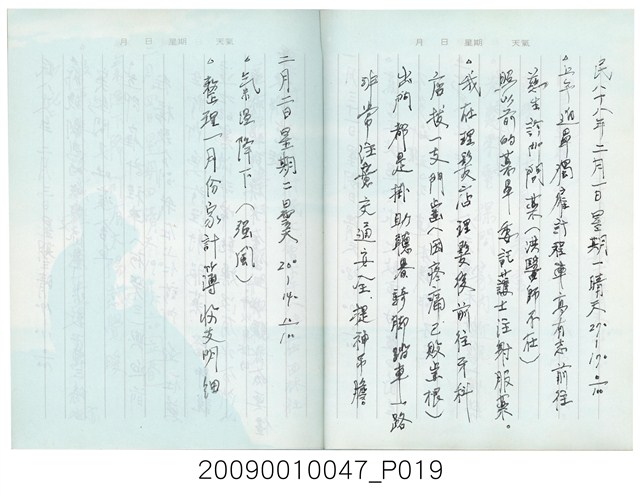 月 日 星期 天氣
民八十八年二月一日星期一晴天 27°–17° 0/100
△上午 計程車 有志 前往
診 (洪醫師不在)
照以前的 單 委託護士注射服藥。
△我在理髮店理髮後前往牙科
店拔一支門齒(因疼痛已敗齒根)
出門都是掛助聽器騎腳踏車一路
非常注意交通安全。提神吊膽。
月 日 星期 天氣
二月二日星期二曇天 20°–14° 10/100
△氣溫降下(強風)
△整理一月份家計簿收支明細
20090010047_P019